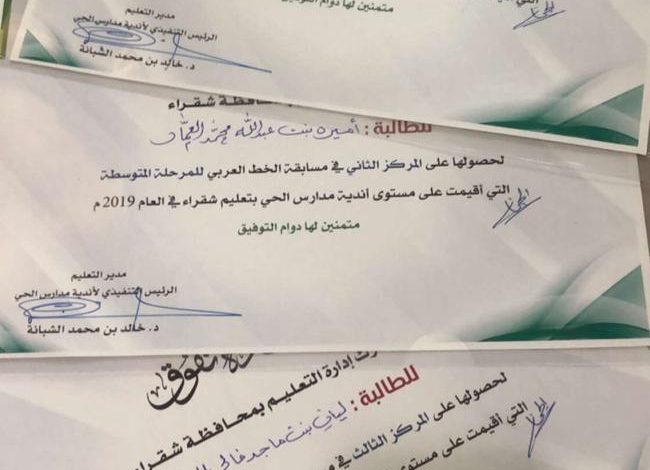 التي
متمنين لها دوام التوفيق
مدير التعليم
الرئيس التنفيذي لأندية مدارس الحي
د. خالد بن محمد الشبانة
بمحافظة شقراء
للطالبة : أميرة بنت عبدالله محمد العماد
لحصولها على المركز الثاني في مسابقة الخط العربي للمرحلة المتوسطة
التي أقيمت على مستوى أندية مدارس الحي بتعليم شقراء في العام 2019 م
متمنين لها دوام التوفيق
مدير التعليم
الرئيس التنفيذي لأندية مدارس الحي
د. خالد بن محمد الشبانة
إدارة التعليم بمحافظة شقراء
للطالبة : ليان بنت ماجد
لحصولها على المركز الثالث في
التي أقيمت على مستوى